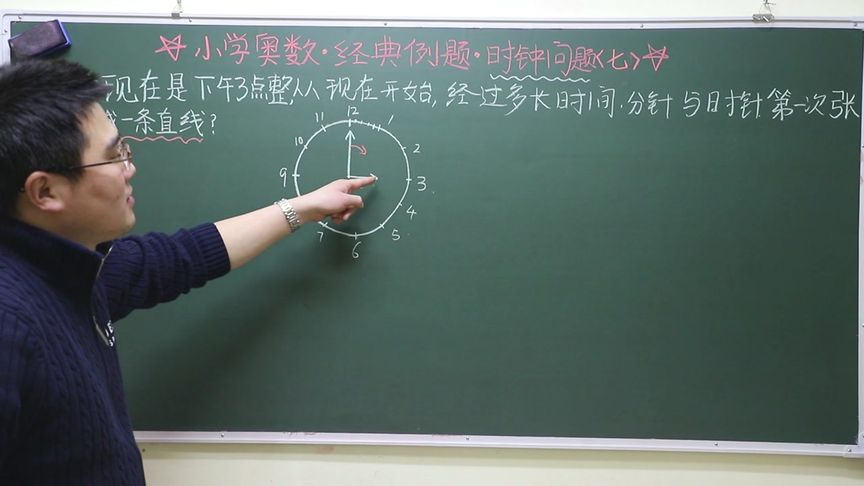 ☆小学奥数·经典例题·时钟问题<七>☆
现在是下午3点整,从现在开始,经过多长时间,分针与时针第一次张
一条直线?
12
11 1
10 2
9 3
4
7 5
6